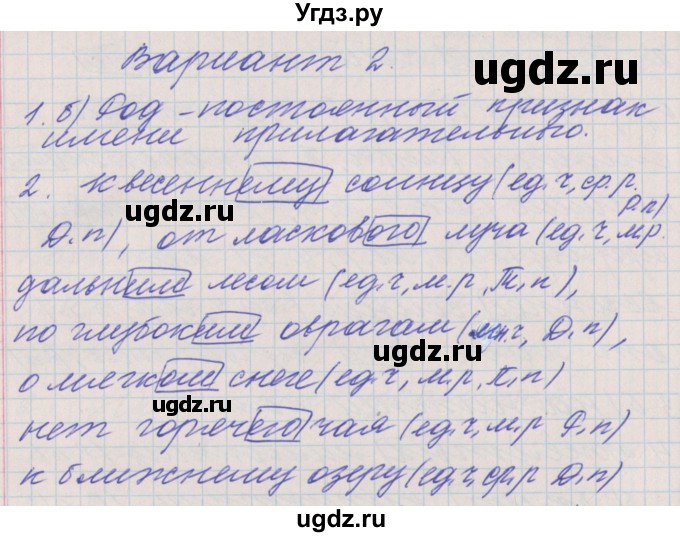 Угдз.ру
Вариант 2.
1. б) Род – постоянный признак
имени прилагательного.
2. к весеннему солнцу (ед.ч, ср.р.
Д.п), от ласкового луча (ед.ч, м.р. Р.п)
дальним лесом (ед.ч, м.р, Т.п),
по глубоким оврагам (мн.ч, Д.п),
о мягком снеге (ед.ч, м.р, п)
нет горячего чая (ед.ч, м.р Р.п)
к ближнему озеру (ед.ч, ср.р Д.п)
ugdz.ru
ugdz.ru
ugdz.ru
ugdz.ru
ugdz.ru
ugdz.ru
ugdz.ru